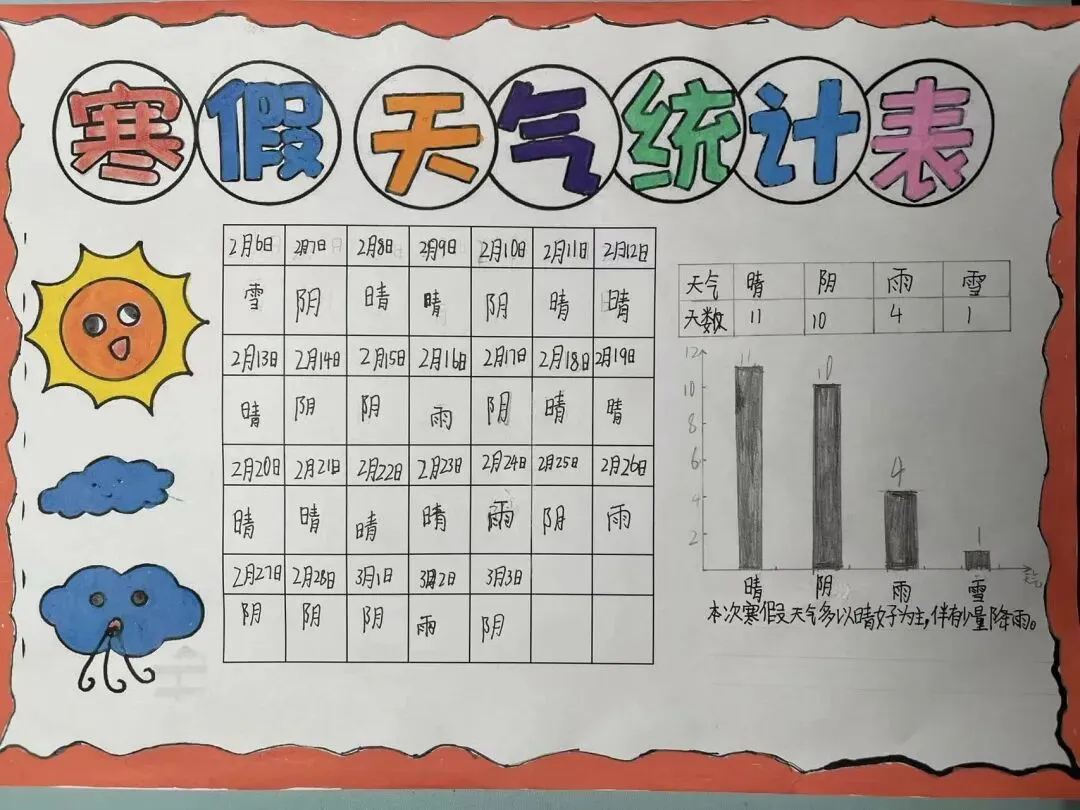 寒假天气统计表
2月6日 2月7日 2月8日 2月9日 2月10日 2月11日 2月12日
雪 阴 晴 晴 阴 晴 晴
2月13日 2月14日 2月15日 2月16日 2月17日 2月18日 2月19日
晴 阴 阴 雨 阴 晴 晴
2月20日 2月21日 2月22日 2月23日 2月24日 2月25日 2月26日
晴 晴 晴 晴 雨 阴 雨
2月27日 2月28日 3月1日 3月2日 3月3日
阴 阴 阴 雨 阴
天气 晴 阴 雨 雪
天数 11 10 4 1
12
10
8
6
4
2
11 10 4 1
晴 阴 雨 雪
本次寒假天气多以晴好为主,伴有少量降雨。